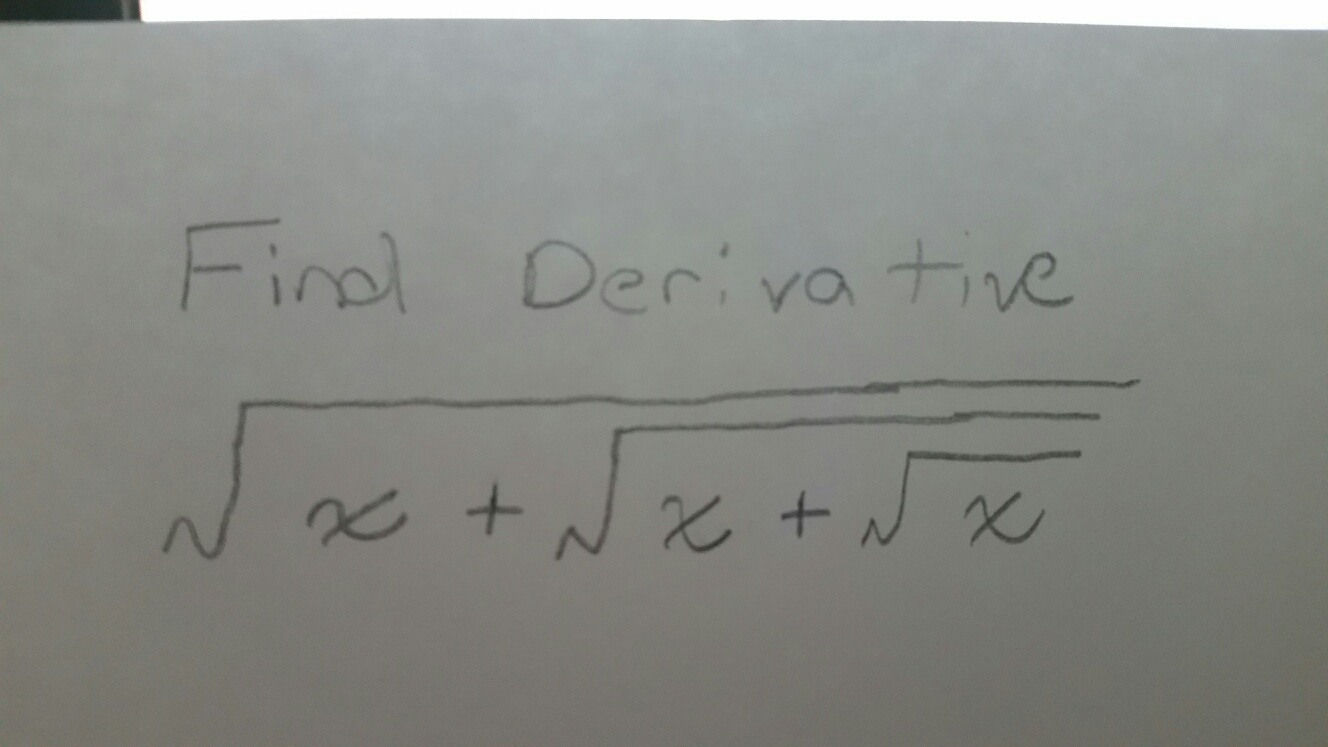 Find Derivative
√(x + √(x + √x))